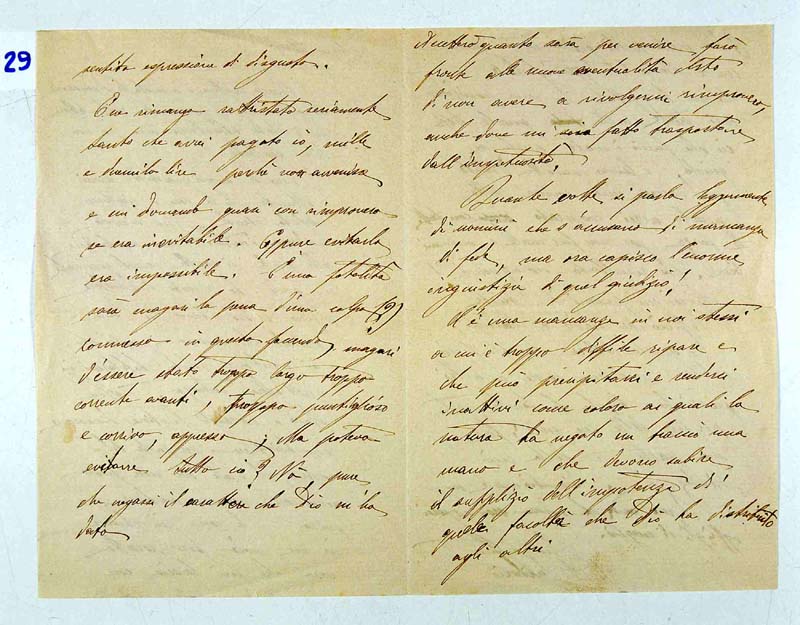 29
sentita espressione di disgusto.
E ne rimango rattristato seriamente
tanto che avrei pagato io, mille
e duemila lire perché non avvenisse
e mi domando quasi con rimprovero
se era inevitabile. Eppure evitarla
era impossibile. È una fatalità
sarà magari la pena d'una colpa (?)
commessa in questa faccenda, magari
d'essere stato troppo largo troppo
corrente avanti, troppo puntiglioso
e corrivo, appresso, Ma potevo
evitare tutto ciò? No, pure
che negassi il carattere che Dio mi ha
dato
quanto sarà per venire, farò
fronte alle nuove eventualità
di non avere a rivolgermi rimprovero,
anche dove mi sia fatto trasportare
dall'impetuosità.
Quante volte si parla leggermente
di uomini che s'accusano di mancanza
di fede, ma ora capisco l'enorme
ingiustizia di quel giudizio!
V'è una mancanza in noi stessi
a cui è troppo difficile riparare e
che può precipitarci e renderci
inattivi come coloro ai quali la
natura ha negato un braccio una
mano e che devono subire
il supplizio dell'impotenza di
quelle facoltà che Dio ha distribuito
agli altri